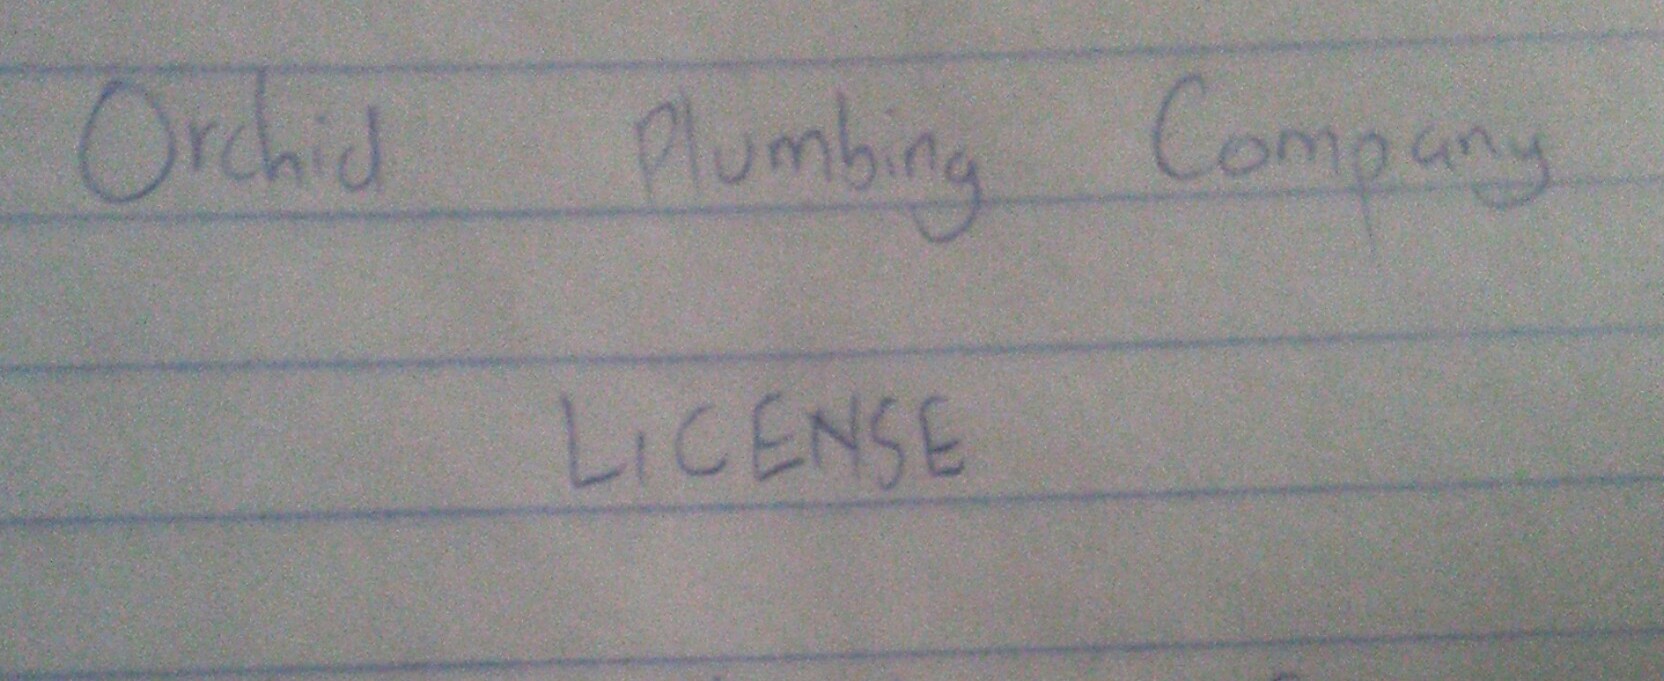 Orchid Plumbing Company
LICENSE